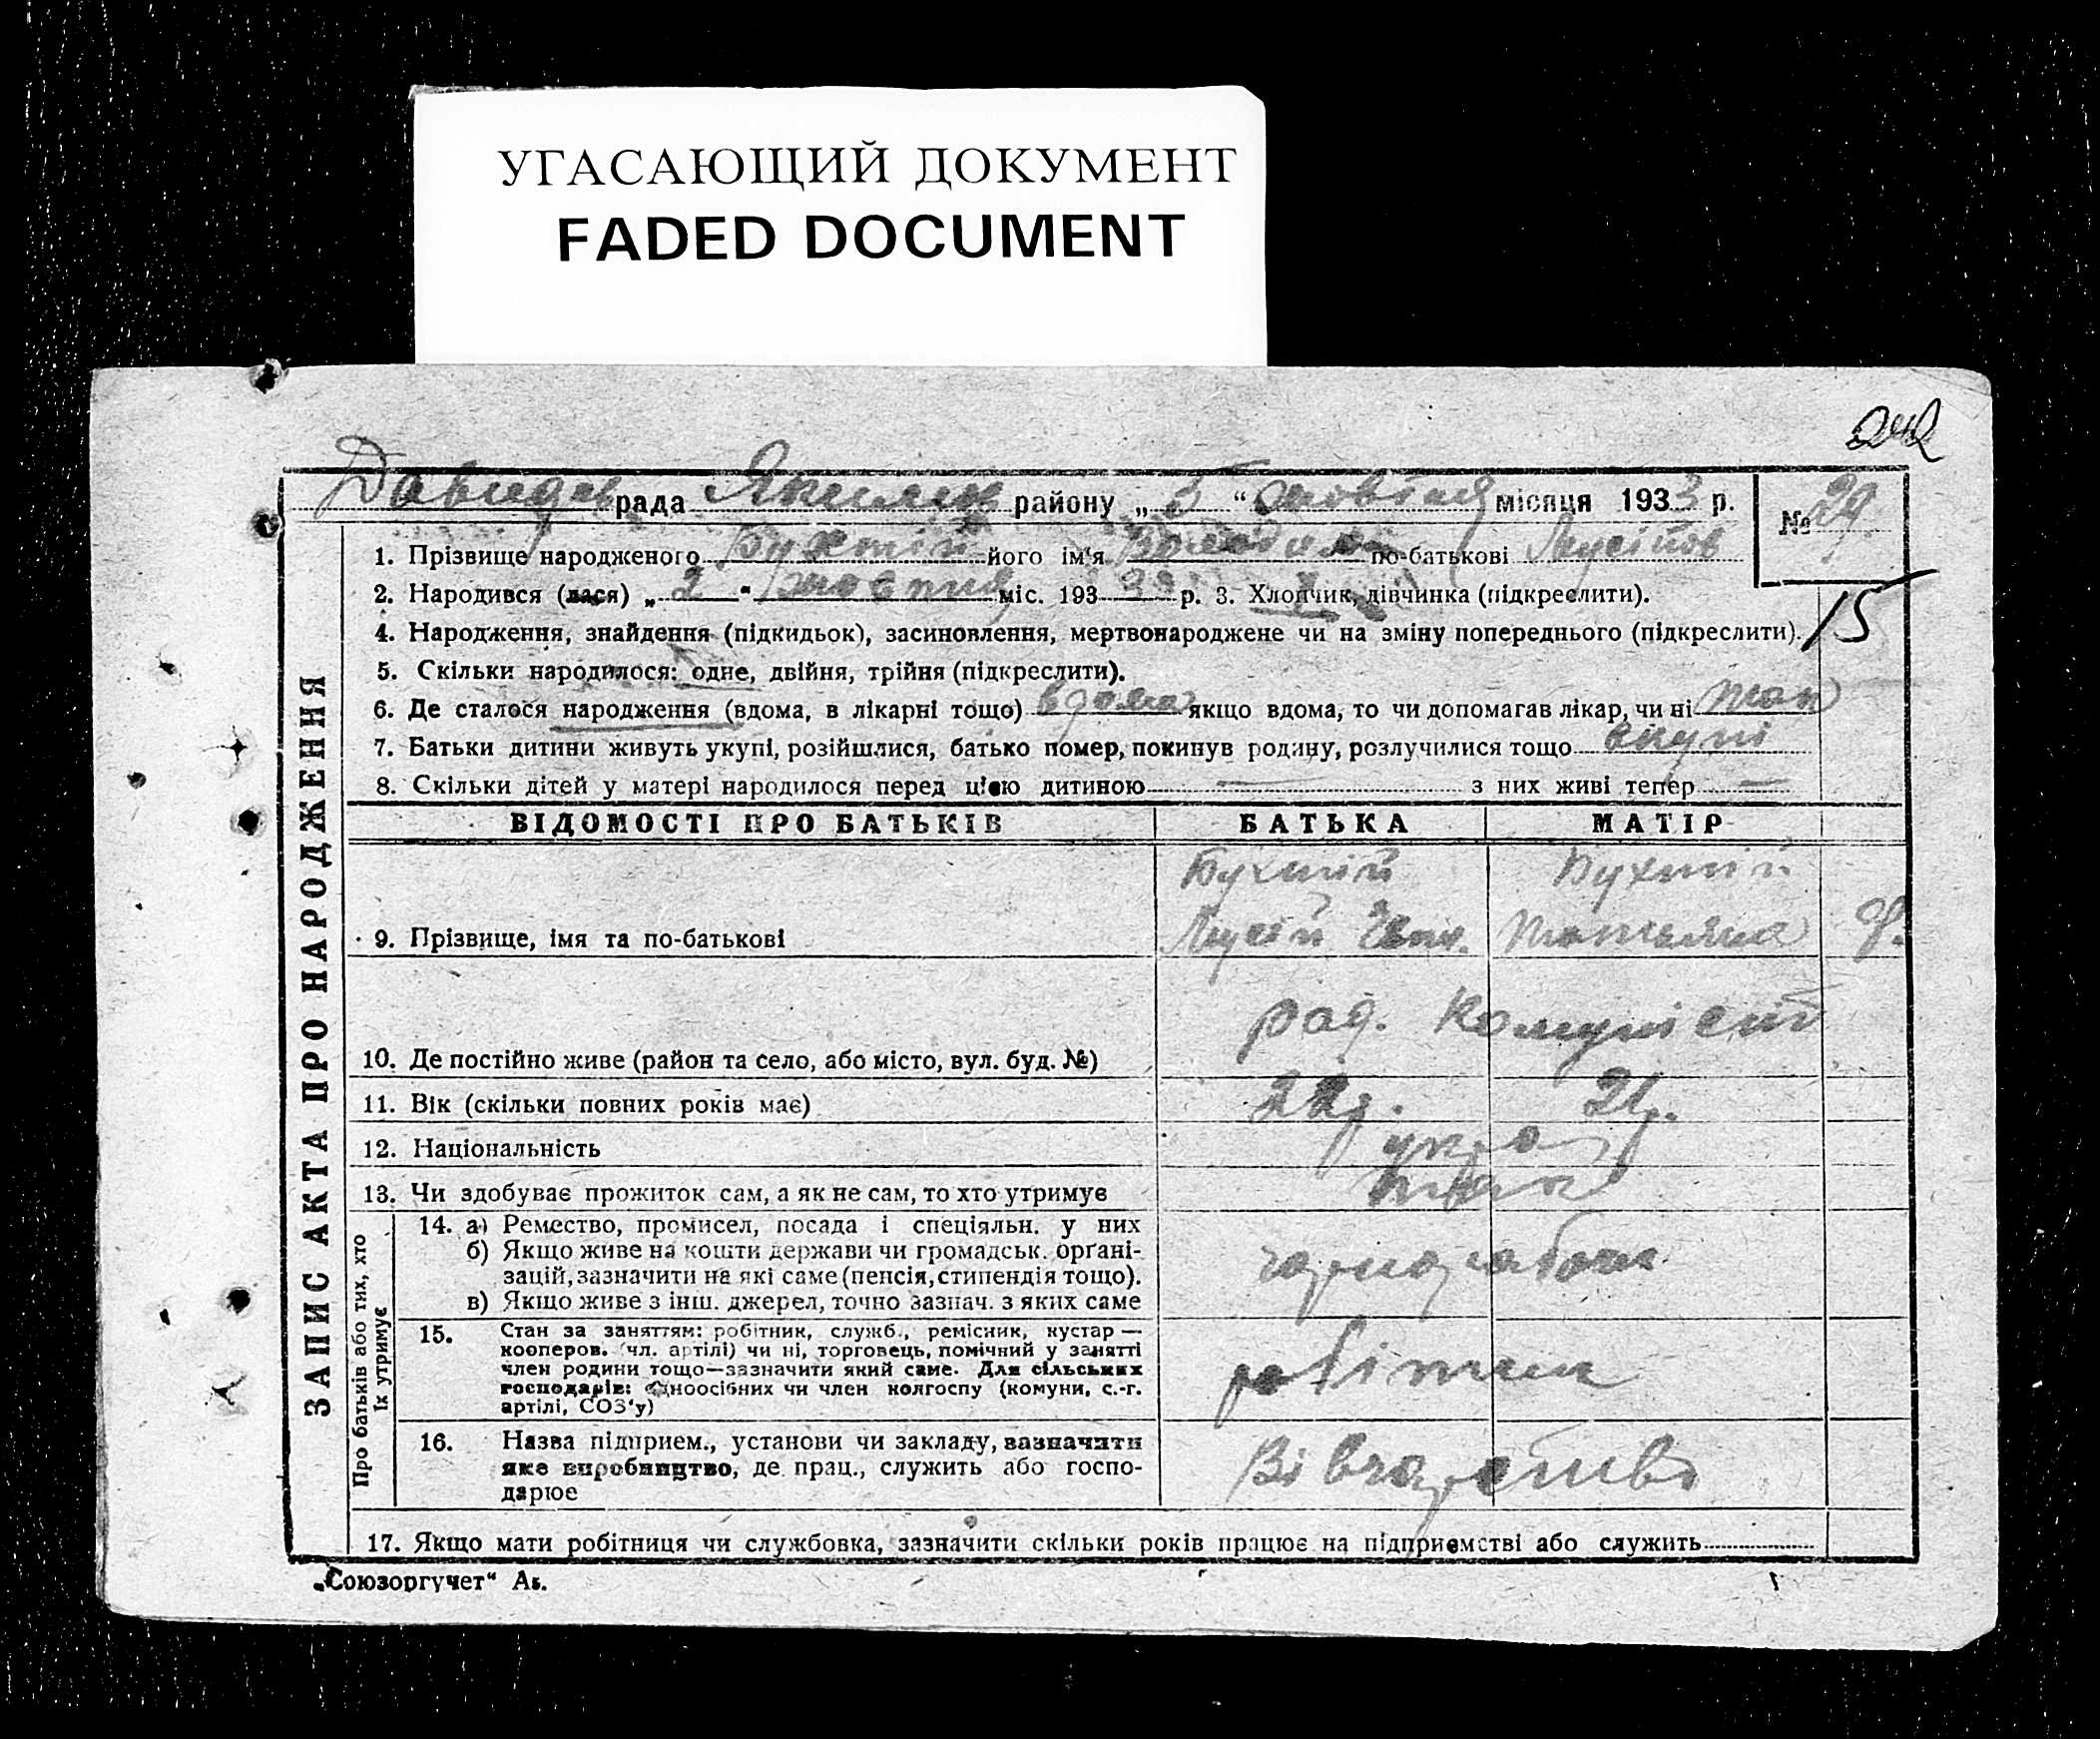 УГАСАЮЩИЙ ДОКУМЕНТ
FADED DOCUMENT
242
Давидов рада район у „ 5 “ жовтня місяця 1933 р.
№ 29
1. Прізвище народженого Бухтій його ім'я Володимир по-батькові Мусіїов
2. Народився (лася) „ 2 “ жовтня міс. 193 33 р. 3. Хлопчик, дівчинка (підкреслити).
15
4. Народження, знайдення (підкидьок), засиновлення, мертвонароджене чи на зміну попереднього (підкреслити).
5. Скільки народилося: одне, двійня, трійня (підкреслити).
6. Де сталося народження (вдома, в лікарні тощо) вдома якщо вдома, то чи допомагав лікар, чи ні так
7. Батьки дитини живуть укупі, розійшлися, батько помер, покинув родину, розлучилися тощо вкупі
8. Скільки дітей у матері народилося перед цією дитиною — з них живі тепер —
ЗАПИС АКТА ПРО НАРОДЖЕННЯ
ВІДОМОСТІ ПРО БАТЬКІВ БАТЬКА МАТІР
Бухтій Бухтій
9. Прізвище, імя та по-батькові Мусій Татьяна
рад. Комуніст
10. Де постійно живе (район та село, або місто, вул. буд. №)
11. Вік (скільки повних років має) 22р. 21р.
12. Національність укр
13. Чи здобуває прожиток сам, а як не сам, то хто утримує так
Про батьків або тих, хто їх утримує
14. а) Ремество, промисел, посада і спеціяльн. у них
б) Якщо живе на кошти держави чи громадськ. орґані-
зацій, зазначити на які саме (пенсія, стипендія тощо). чорнорабочи
в) Якщо живе з інш. джерел, точно зазнач. з яких саме
15. Стан за заняттям: робітник, служб., ремісник, кустар —
кооперов. (чл. артілі) чи ні, торговець, помічний у занятті
член родини тощо—зазначити який саме. Для сільських робітник
господарів: одноосібних чи член колгоспу (комуни, с.-г.
артілі, СОЗ'у)
16. Назва підприєм., установи чи закладу, зазначити
яке виробництво, де прац., служить або госпо- Вівчарство
дарює
17. Якщо мати робітниця чи службовка, зазначити скільки років працює на підприємстві або служить
„Союзоргучет“